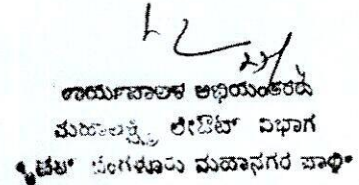 ಕಾರ್ಯಪಾಲಕ ಅಭಿಯಂತರರು
ಮಹಾಲಕ್ಷ್ಮಿ ಲೇಔಟ್ ವಿಭಾಗ
ಬೆಂಗಳೂರು ಮಹಾನಗರ